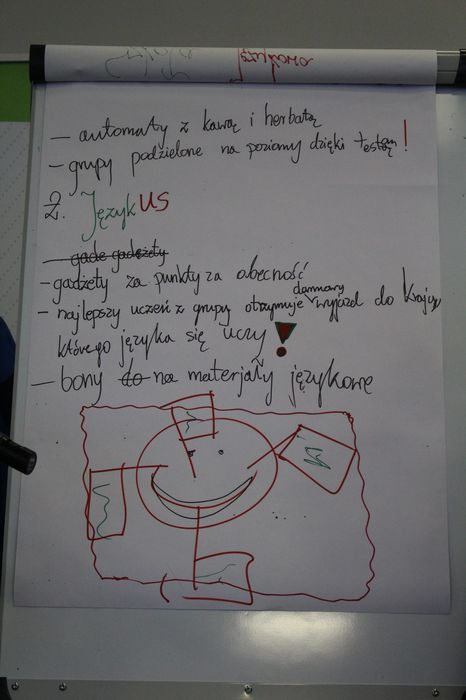 — automaty z kawą i herbatą
— grupy podzielone na poziomy dzięki testom!
2. JęzykUS
gade gadżety
- gadżety za punkty za obecność
- najlepszy uczeń z grupy otrzymuje darmowy wyjazd do kraju,
którego języka się uczy!
— bony do na materjały językowe